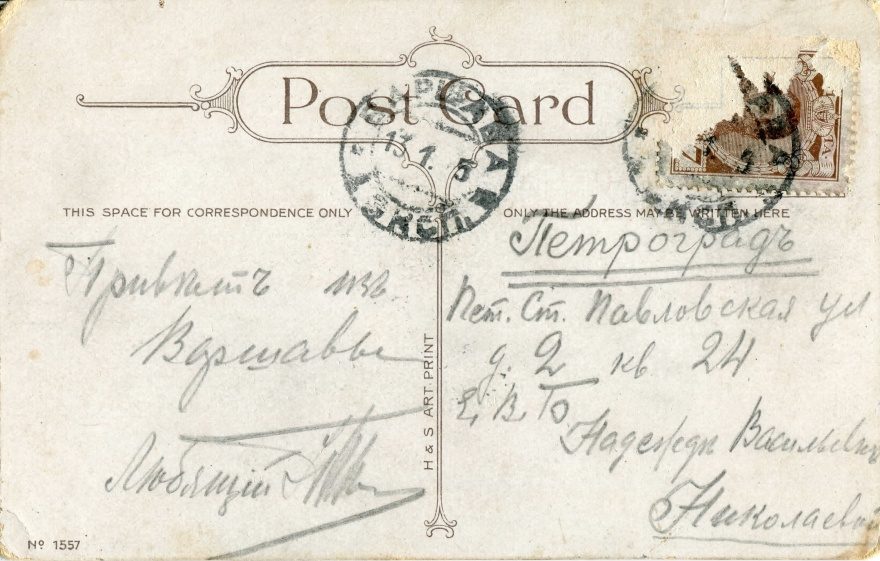 Post Card
THIS SPACE FOR CORRESPONDENCE ONLY
ONLY THE ADDRESS MAY BE WRITTEN HERE
13.1.5
Привѣтъ изъ
Варшавы
Любящій
Петроградъ
Пет. Ст. Павловская ул
д. 2 кв 24
Е. В. Б.
Надеждѣ Васильевнѣ
Николаевой
H & S ART PRINT
No 1557